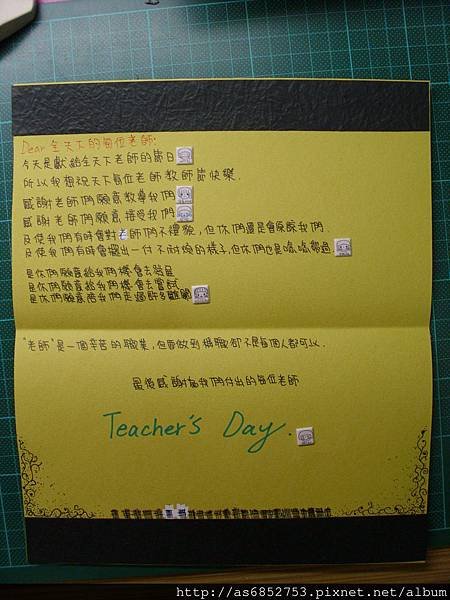 Dear 全天下的每位老師:
今天是獻給全天下老師的節日
所以我想祝天下每位老師教師節快樂.
感謝老師們願意教導我們
感謝老師們願意接受我們
及使我們有時會對老師們不禮貌,但你們還是會原諒我們.
及使我們有時會擺出一付不耐煩的樣子,但你們也是嘻嘻帶過
是你們願意給我們機會去
是你們願意給我們機會去嘗試
是你們願意陪我們走過許多難關
"老師"是一個辛苦的職業,但要做到稱職卻不是每個人都可以.
最後感謝為我們付出的每位老師
Teacher's Day.
http://as6852753.pixnet.net/album